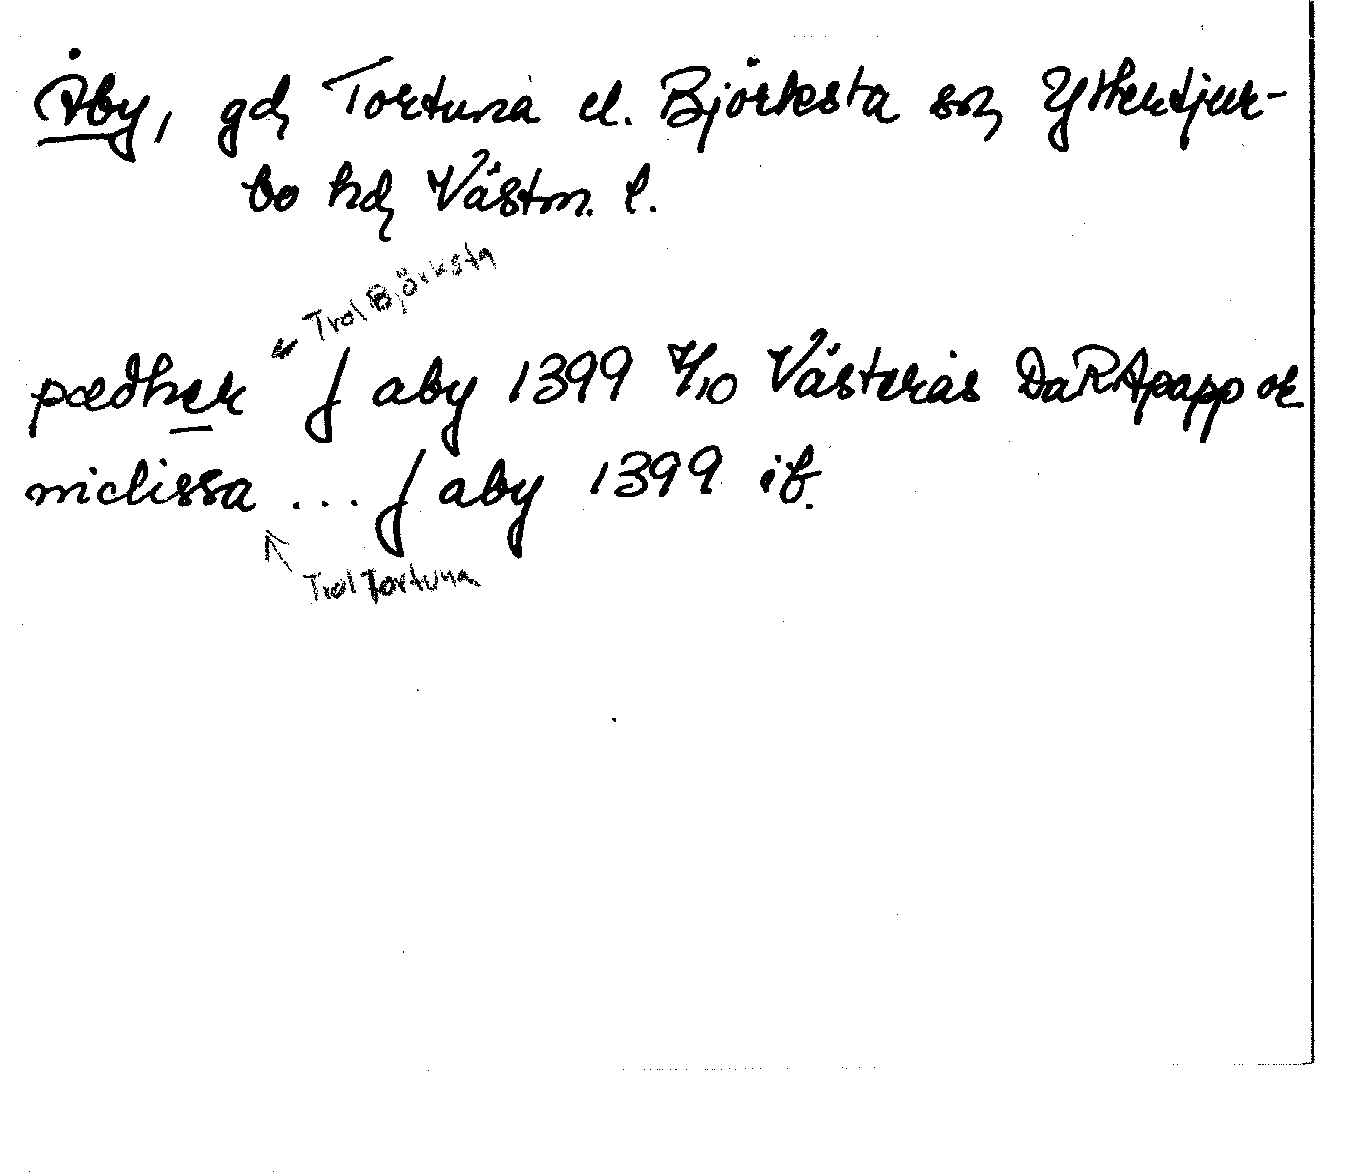 Åby, gd Tortuna el. Björksta sn Yttertjur-
bo hd Västm. l.
Trol Björksta
pædher J aby 1399 4/10 Västerås DaRApapp or
niclissa ... J aby 1399 ib.
Trol Tortuna